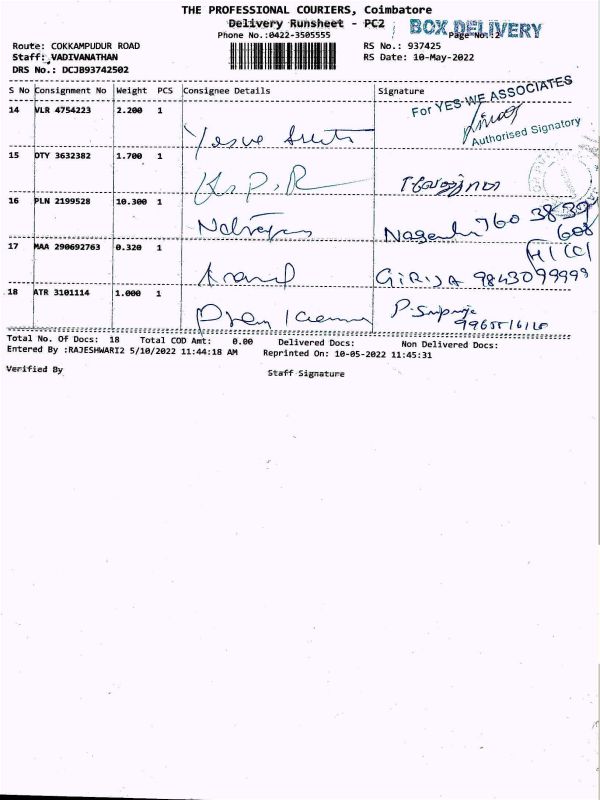 THE PROFESSIONAL COURIERS, Coimbatore
Delivery Runsheet - PC2
BOX DELIVERY
Phone No.:0422-3505555
Page No.:2
Route: COKKAMPUDUR ROAD
RS No.: 937425
Staff: VADIVANATHAN
RS Date: 10-May-2022
DRS No.: DCJB93742502
S No Consignment No Weight PCS Consignee Details Signature
For YES WE ASSOCIATES
14 VLR 4754223 2.200 1
Authorised Signatory
15 DTY 3632382 1.700 1
K.P.R
16 PLN 2199528 10.300 1
17 MAA 290692763 0.320 1
GIRIJA 9843099999
18 ATR 3101114 1.000 1
Total No. Of Docs: 18 Total COD Amt: 0.00 Delivered Docs: Non Delivered Docs:
Entered By :RAJESHWARI2 5/10/2022 11:44:18 AM Reprinted On: 10-05-2022 11:45:31
Verified By
Staff Signature